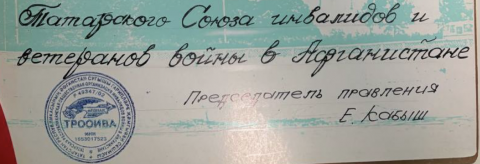 Татарского Союза инвалидов и
ветеранов войны в Афганистане
Председатель правления
Е. Кабыш
ТРООИВА